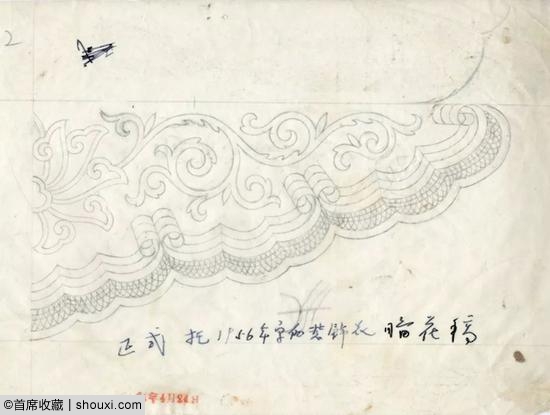 2
正式 托1956年字的装饰花 暗花稿
年4月24日
@首席收藏 | shouxi.com